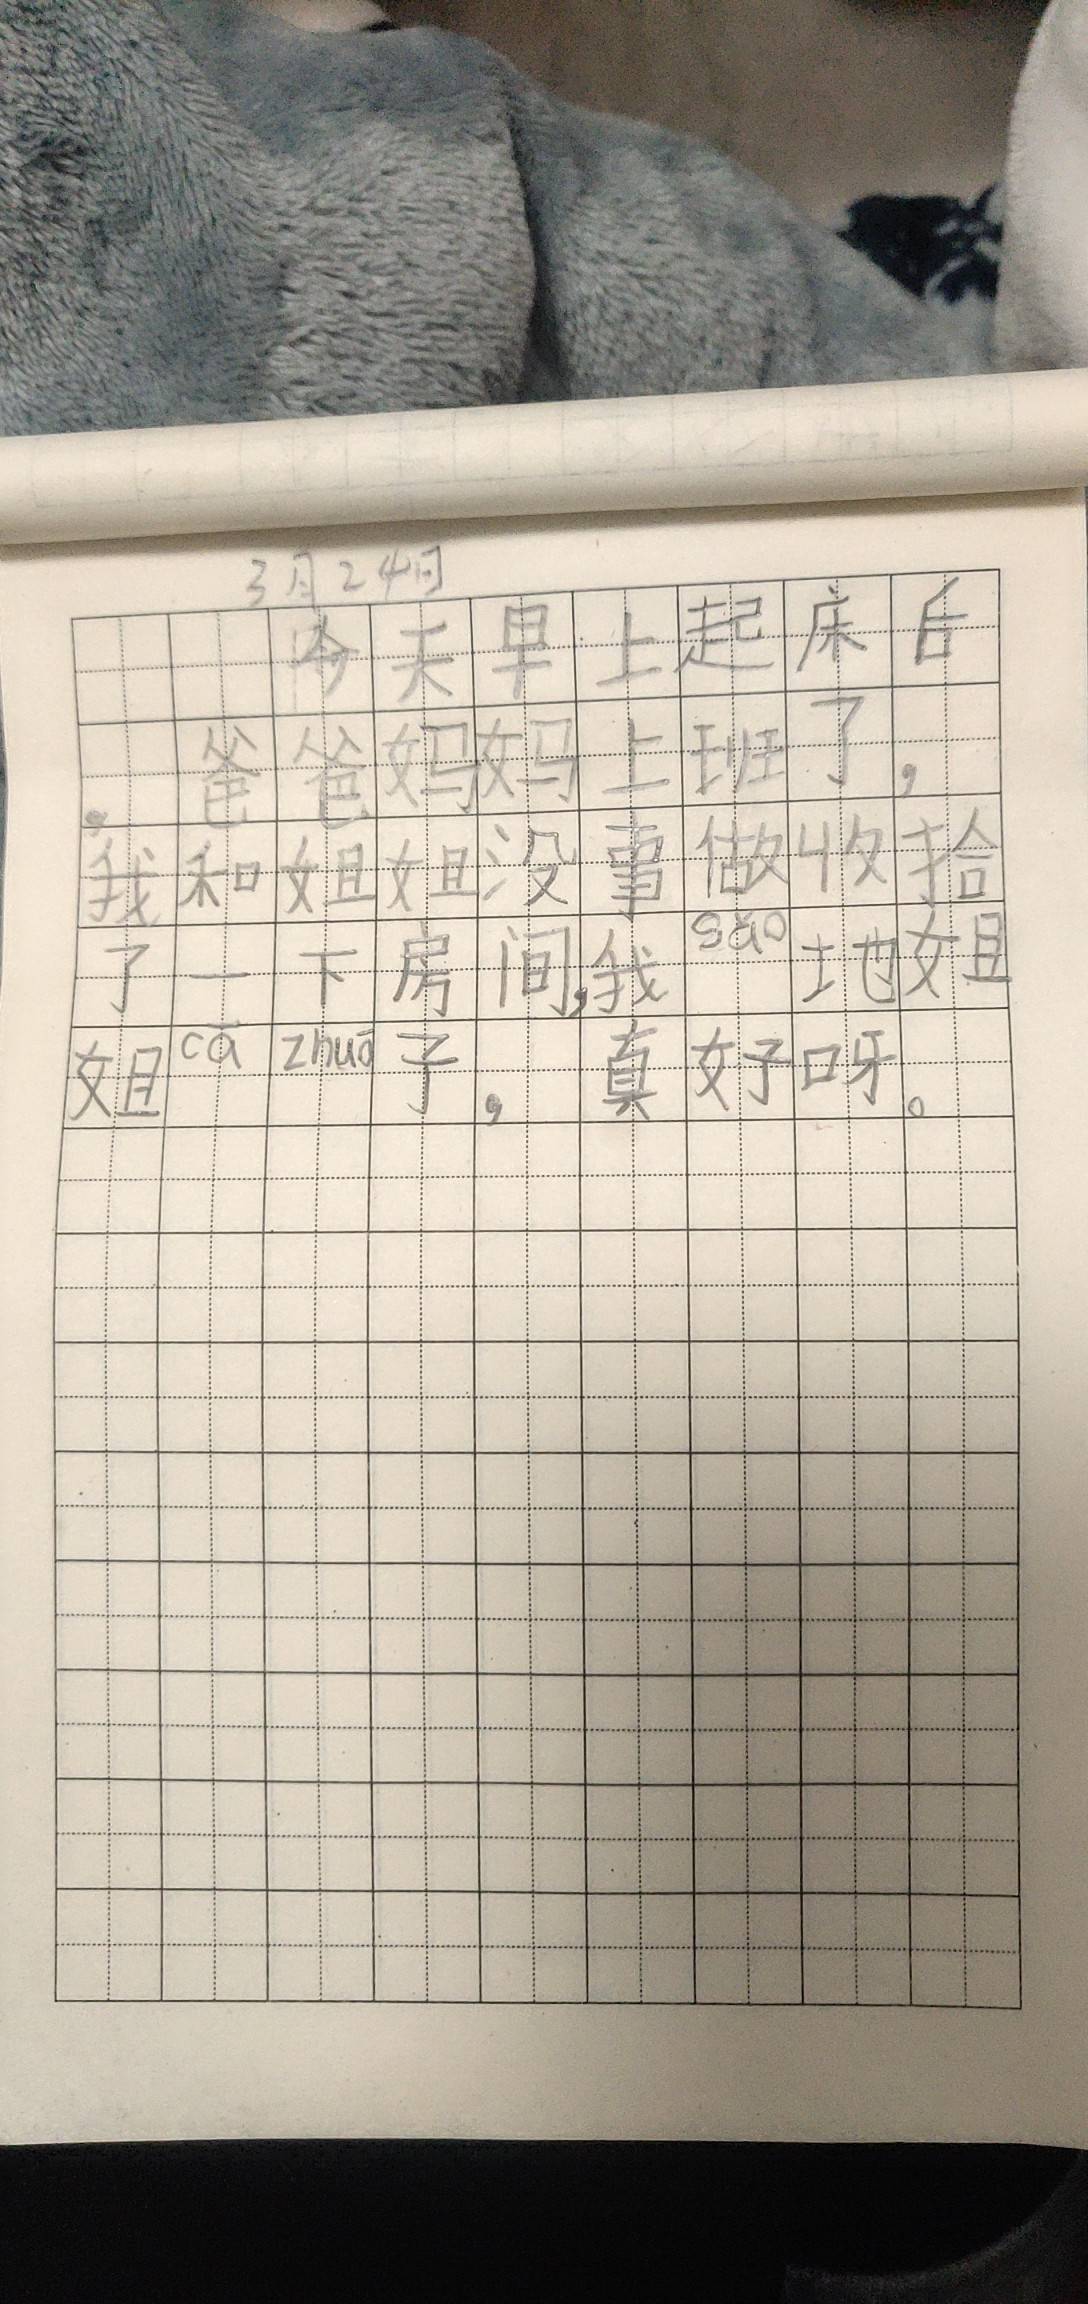 3月24日
今天早上起床后
，爸爸妈妈上班了，
我和姐姐没事做收拾
了一下房间，我sǎo地姐
姐cā zhuō子，真好呀。